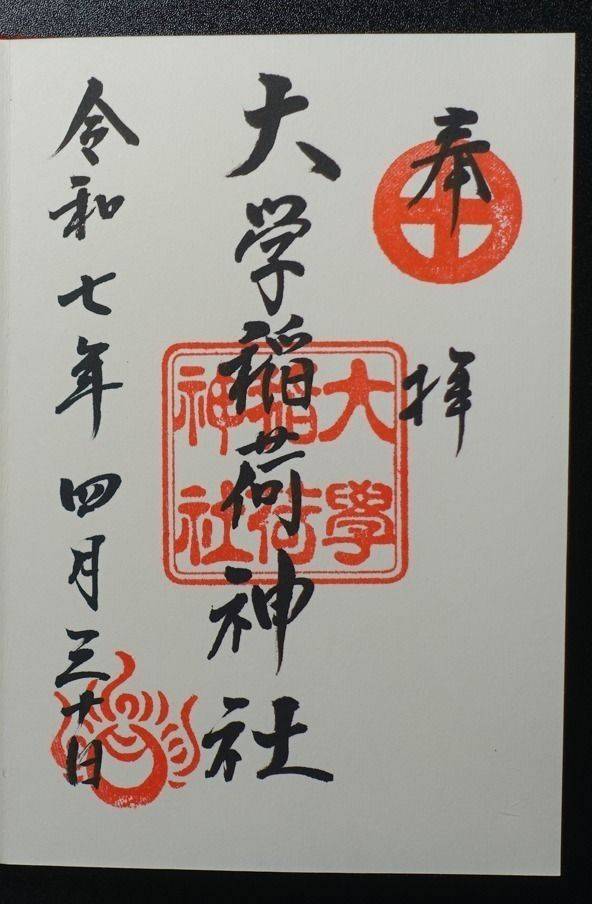 奉拝
大学稲荷神社
大學稲荷神社
令和七年四月三十日